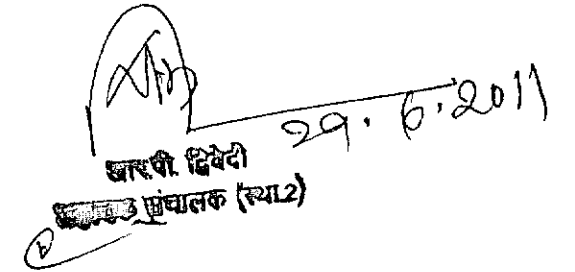 29.6.2011
आर.पी. द्विवेदी
संचालक (स्था.2)